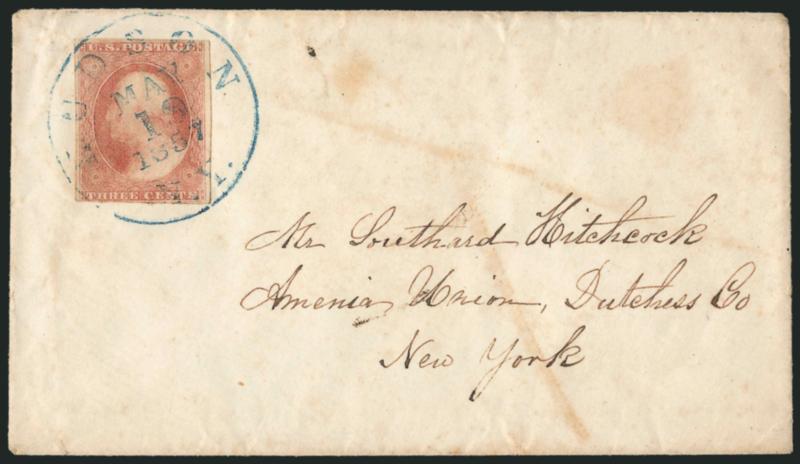 U.S. POSTAGE
HUDSON
MAY
19
1857
N.Y.
THREE CENTS
Mr Southard Hitchcock
Amenia Union, Dutchess Co
New York